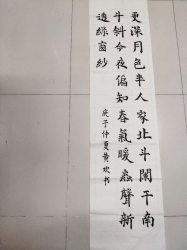 更深月色半人家北斗闌干南
斗斜今夜偏知春氣暖蟲聲新
透綠窗紗
庚子仲夏黄欢书